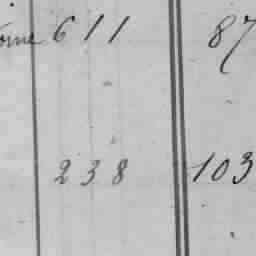 611 87
238 103